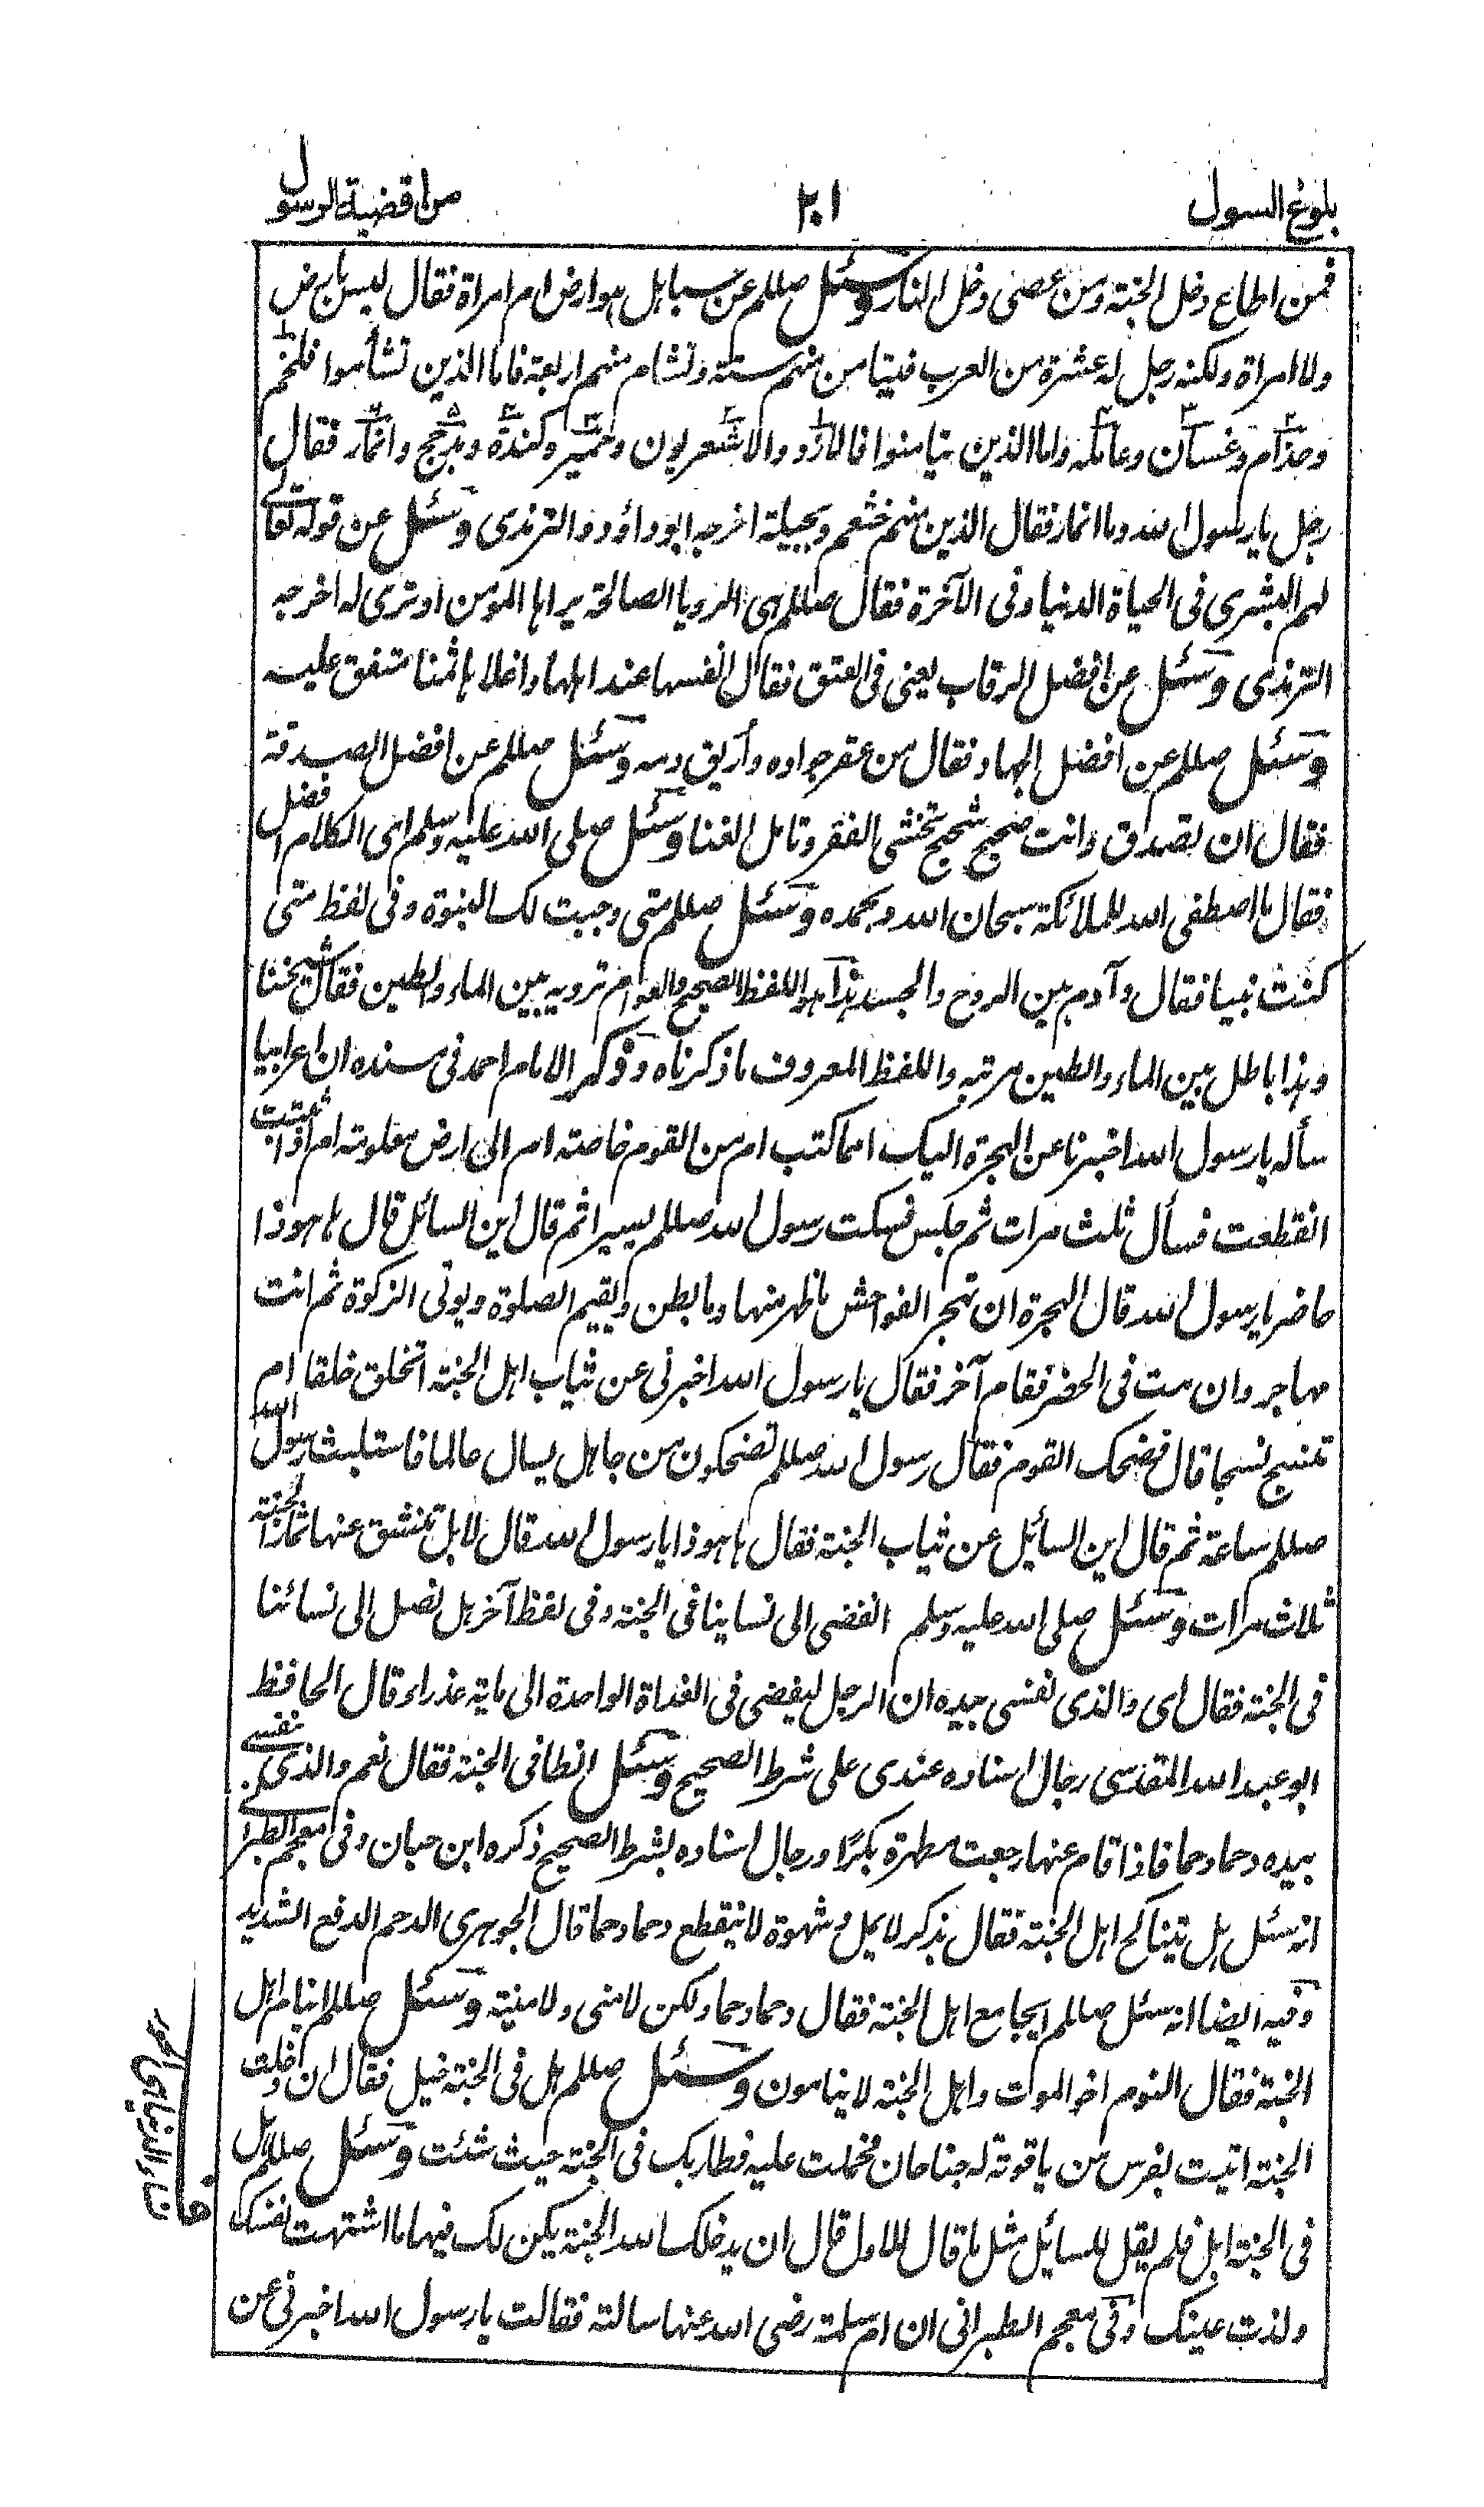 بلوغ السول
٢٠١
من اقضية الرسول
فمن اطاع دخل الجنة ومن عصى دخل النار وسئل صللم عن سبا هل هو ارض ام امراة فقال ليس بارض
ولا امراة ولكنه رجل له عشرة من العرب فتيامن منهم ستة وتشام منهم اربعة فاما الذين تشأموا فلخم
وجذام وغسان وعاملة واما الذين تيامنوا فالازد والاشعريون وحمير وكندة ومذحج وانمار فقال
رجل يا رسول الله وما انمار فقال الذين منهم خثعم وبجيلة اخرجه ابو داؤد والترمذى وسئل عن قوله تعالى
لهم البشرى فى الحياة الدنيا وفى الآخرة فقال صللم هى الرويا الصالحة يراها المؤمن او ترى له اخرجه
الترمذى وسئل عن افضل الرقاب يعنى فى العتق فقال انفسها عند اهلها واغلاها ثمنا متفق عليه
وسئل صللم عن افضل الجهاد فقال من عقر جواده وأريق دمه وسئل صللم عن افضل الصدقة
فقال ان تصدق وانت صحيح شحيح تخشى الفقر وتامل الغنا وسئل صلى الله عليه وسلم اى الكلام افضل
فقال ما اصطفى الله للملائكة سبحان الله وبحمده وسئل صللم متى وجبت لك النبوة وفى لفظ متى
كنت نبيا فقال وآدم بين الروح والجسد هذا هو اللفظ الصحيح والعوام ترويه بين الماء والطين فقال شيخنا
وهذا باطل بين الماء والطين مرتبه واللفظ المعروف ما ذكرناه وذكر الامام احمد فى مسنده ان اعرابيا
سأله يا رسول الله اخبرنا عن الهجرة اليك اينما كنت ام من القوم خاصته ام الى ارض معلومته ام اذا مت
انقطعت فسأل ثلث مرات ثم جلس فسكت رسول الله صللم يسيرا ثم قال اين السائل قال ها هوذا
حاضر يا رسول الله قال الهجرة ان تهجر الفواحش ما ظهر منها وما بطن ويقيم الصلوة ويوتى الزكوة ثم انت
مهاجر وان مت فى الحضر فقام آخر فقال يا رسول الله اخبرنى عن ثياب اهل الجنة اتخلق خلقا ام
تنسج نسجا قال فضحك القوم فقال رسول الله صللم تضحكون من جاهل يسال عالما فاستلبث رسول الله
صللم ساعة ثم قال اين السائيل عن ثياب الجنة فقال ها هوذا يا رسول الله قال لا بل تنشق عنها ثمار الجنة
ثلاث مرات وسئل صلى الله عليه وسلم انفضى الى نساينا فى الجنة وفى لفظ آخر هل نصل الى نسائنا
فى الجنة فقال اى والذى نفسى بيده ان الرجل ليفضى فى الغداة الواحدة الى ماية عذراء قال الحافظ
ابو عبد الله المقدسى رجال اسناده عندى على شرط الصحيح وسئل انطا فى الجنة فقال نعم والذى نفسى
بيده دحما دحما فاذا قام عنها رجعت مطهرة بكرًا ورجال اسناده بشرط الصحيح ذكره ابن حبان وفى معجم الطبرانى
انه سئل هل يتناكح اهل الجنة فقال بذكر لا يمل وشهوة لا تنقطع دحما دحما قال الجوهرى الدحم الدفع الشديد
وفيه ايضا انه سئل صللم ايجامع اهل الجنة فقال دحما دحما ولكن لا منى ولا منية وسئل صللم اينام اهل
الجنة فقال النوم اخو الموت واهل الجنة لا ينامون وسئل صللم هل فى الجنة خيل فقال ان دخلت
الجنة اتيت بفرس من ياقوتة له جناحان فحملت عليه فطار بك فى الجنة حيث شئت وسئل صللم هل
فى الجنة ابل فلم يقل للسائيل مثل ما قال للاول قال ان يدخلك الله الجنة يكن لك فيها ما اشتهت نفسك
ولذت عينك وفى معجم الطبرانى ان ام سلمة رضى الله عنها سالته فقالت يا رسول الله اخبرنى عن